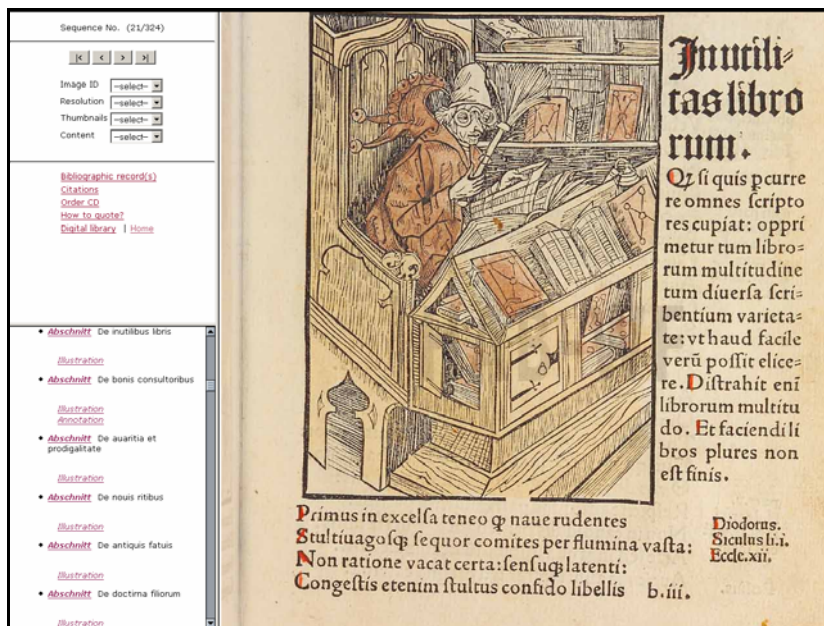 Sequence No. (21/324)
|< < > >|
Image ID --select--
Resolution --select--
Thumbnails --select--
Content --select--
Bibliographic record(s)
Citations
Order CD
How to quote?
Digital library | Home
Abschnitt De inutilibus libris
Illustration
Abschnitt De bonis consultoribus
Illustration
Annotation
Abschnitt De auaritia et
prodigalitate
Illustration
Abschnitt De nouis ritibus
Illustration
Abschnitt De antiquis fatuis
Illustration
Abschnitt De doctima filiorum
Illustration
Inutili⸗
tas libro
rum.
Qꝫ si quis ꝑcurre
re omnes ſcripto
res cupiat: oppri
metur tum libro⸗
rum multitudine
tum diuerſa ſcri⸗
bentium varieta⸗
te: vt haud facile
verū poſſit elice⸗
re. Diſtrahit eni
librorum multitu
do. Et faciendi li
bros plures non
eſt finis.
Primus in excelſa teneo ꝙ naue rudentes
Stultiuagoſqꝫ ſequor comites per flumina vaſta:
Non ratione vacat certa: ſenſuqꝫ latenti:
Congeſtis etenim ſtultus confido libellis b.iii.
Diodorus.
Siculus li.i.
Eccle.xii.